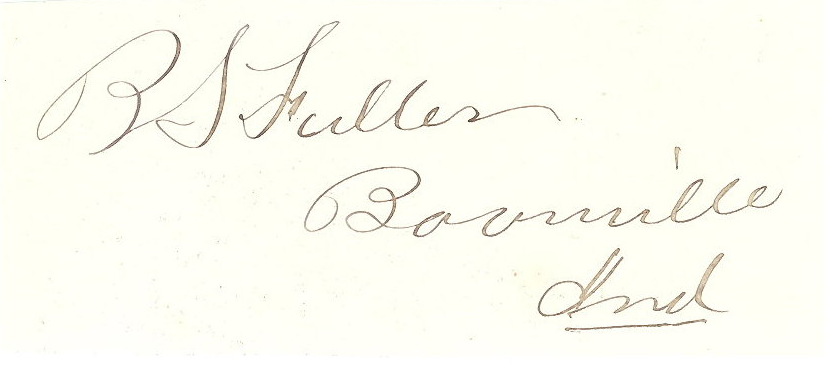 B S Fuller
Boonville
Ind